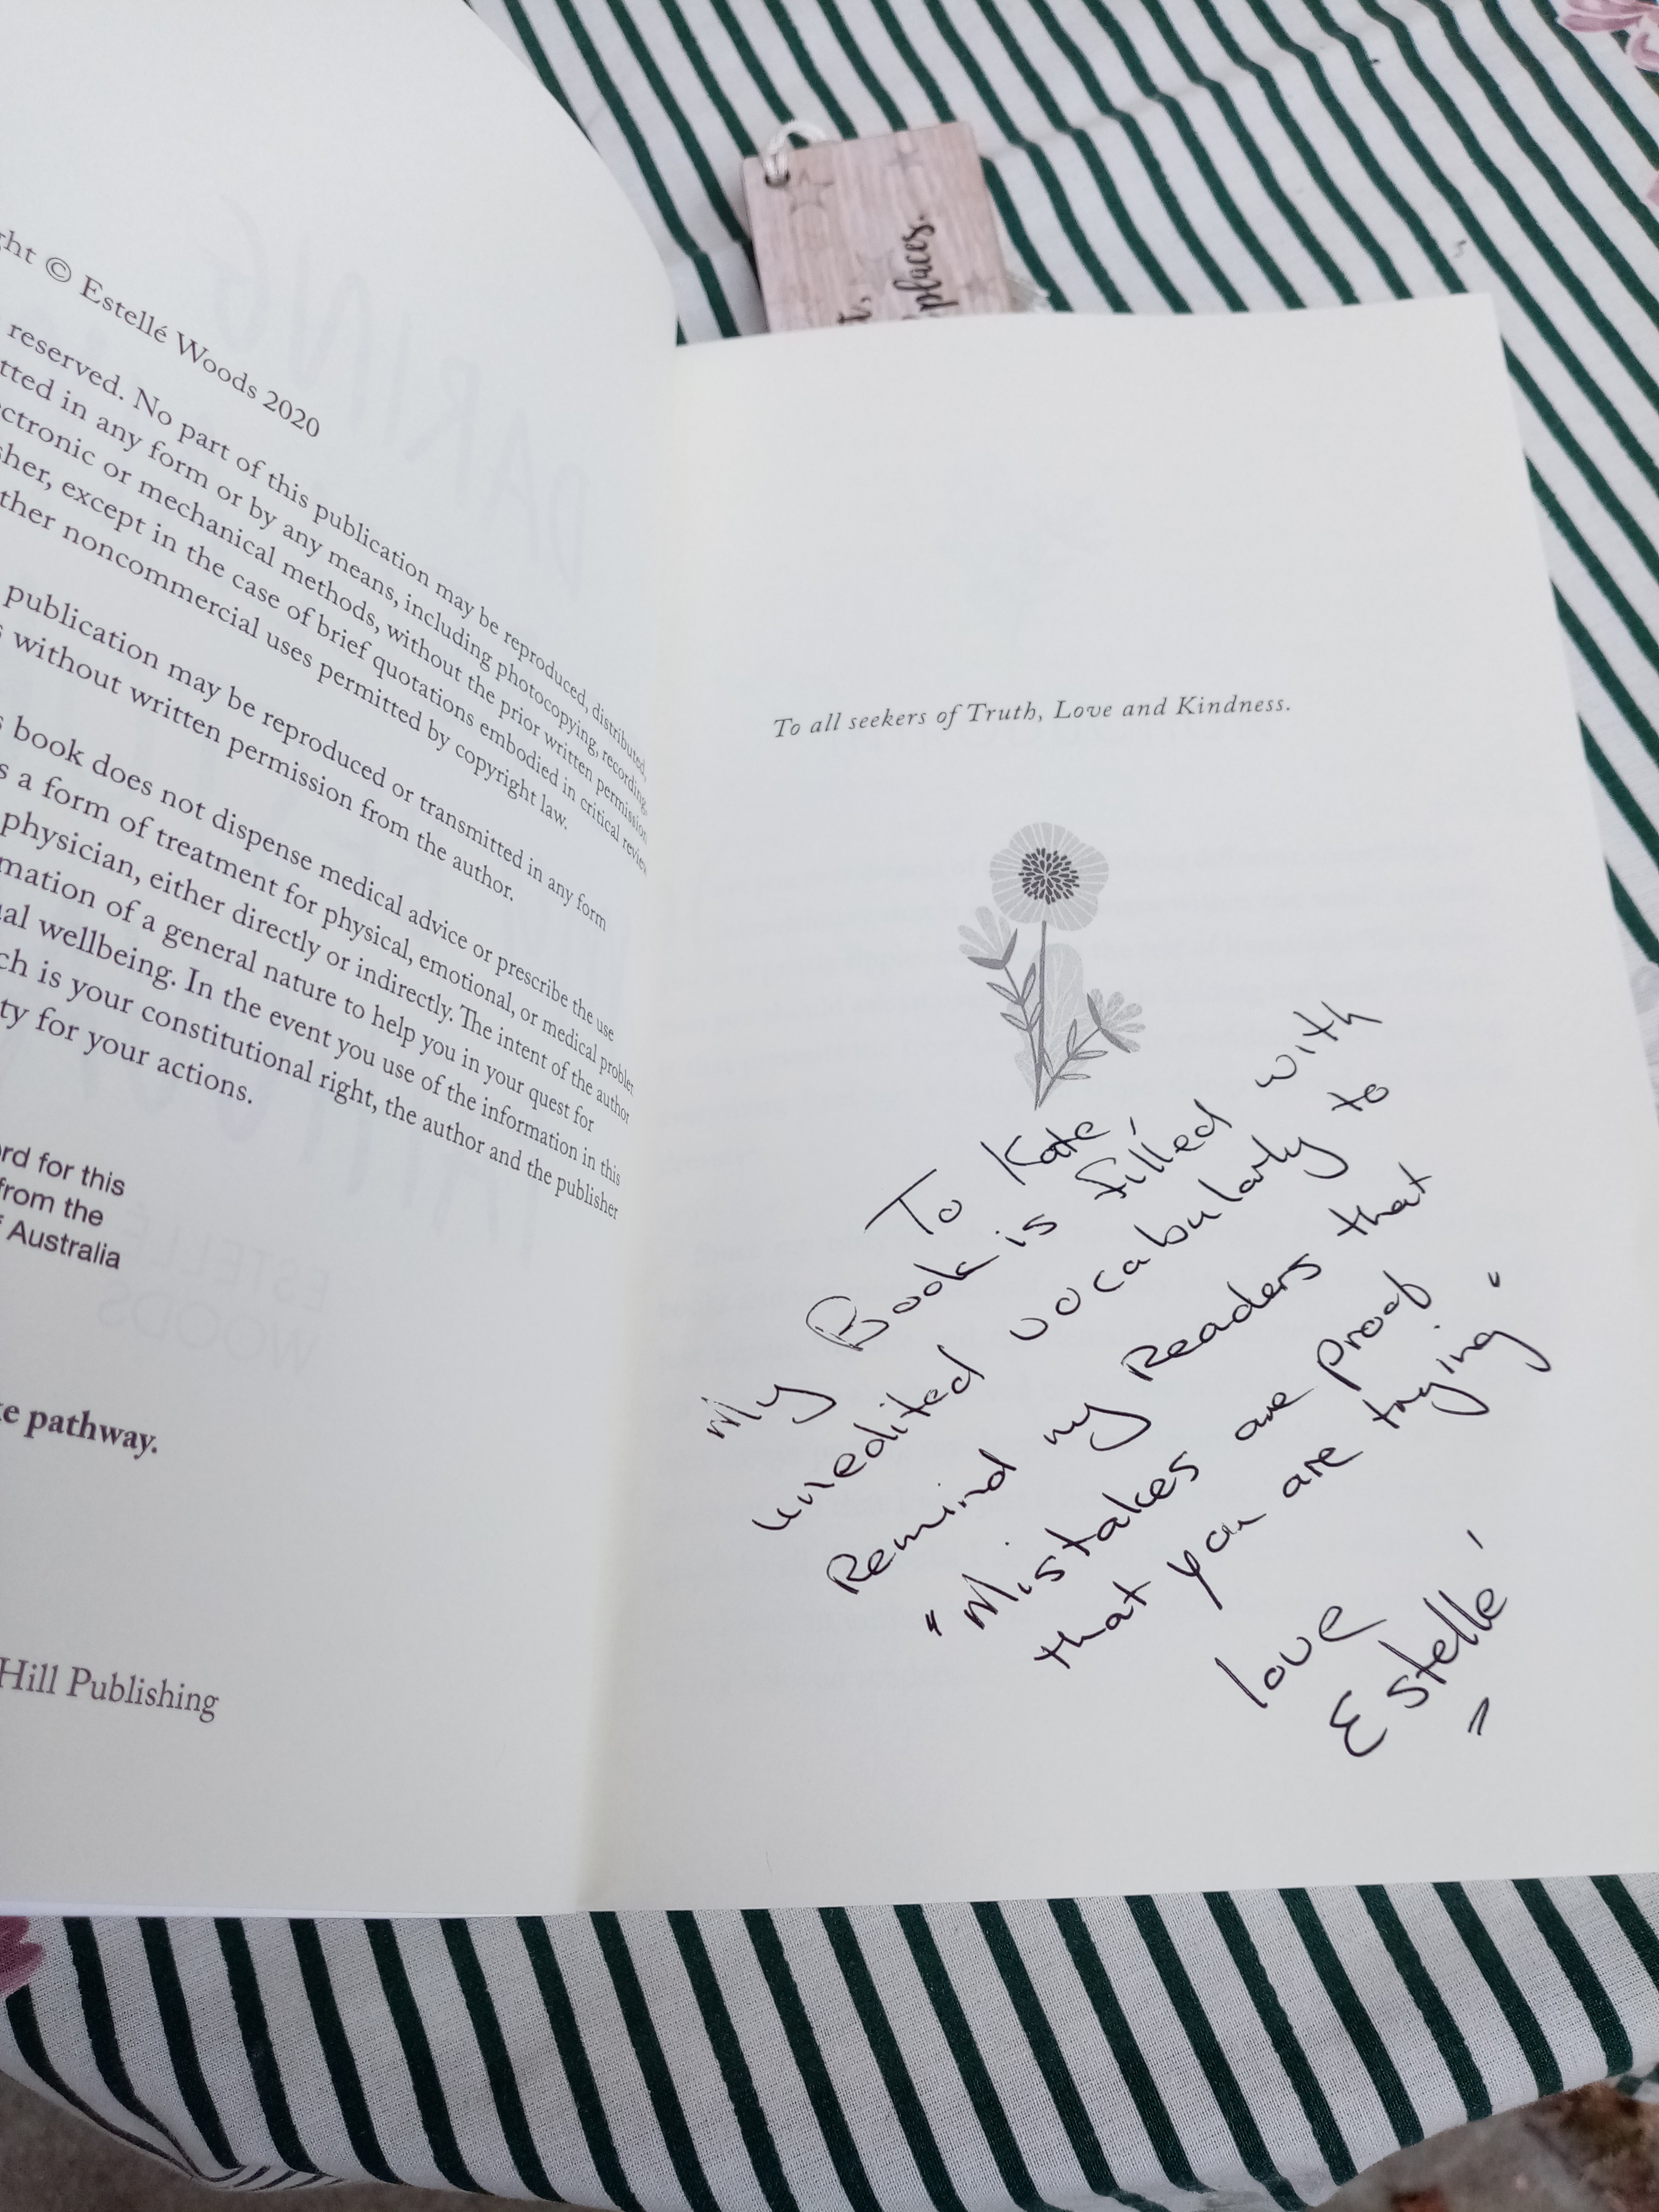 ght © Estellé Woods 2020
reserved. No part of this publication may be reproduced, distributed,
tted in any form or by any means, including photocopying, recording,
ectronic or mechanical methods, without the prior written permission
sher, except in the case of brief quotations embodied in critical review
ther noncommercial uses permitted by copyright law.
publication may be reproduced or transmitted in any form
s without written permission from the author.
s book does not dispense medical advice or prescribe the use
s a form of treatment for physical, emotional, or medical problem
physician, either directly or indirectly. The intent of the author
mation of a general nature to help you in your quest for
ual wellbeing. In the event you use of the information in this
ch is your constitutional right, the author and the publisher
ty for your actions.
rd for this
from the
f Australia
te pathway.
Hill Publishing
places.
To all seekers of Truth, Love and Kindness.
To Kate,
My Book is filled with
unedited vocabularly to
Remind my Readers that
"Mistakes are proof
that you are trying"
love
Estellé
DARING
ESTELLE
WOODS